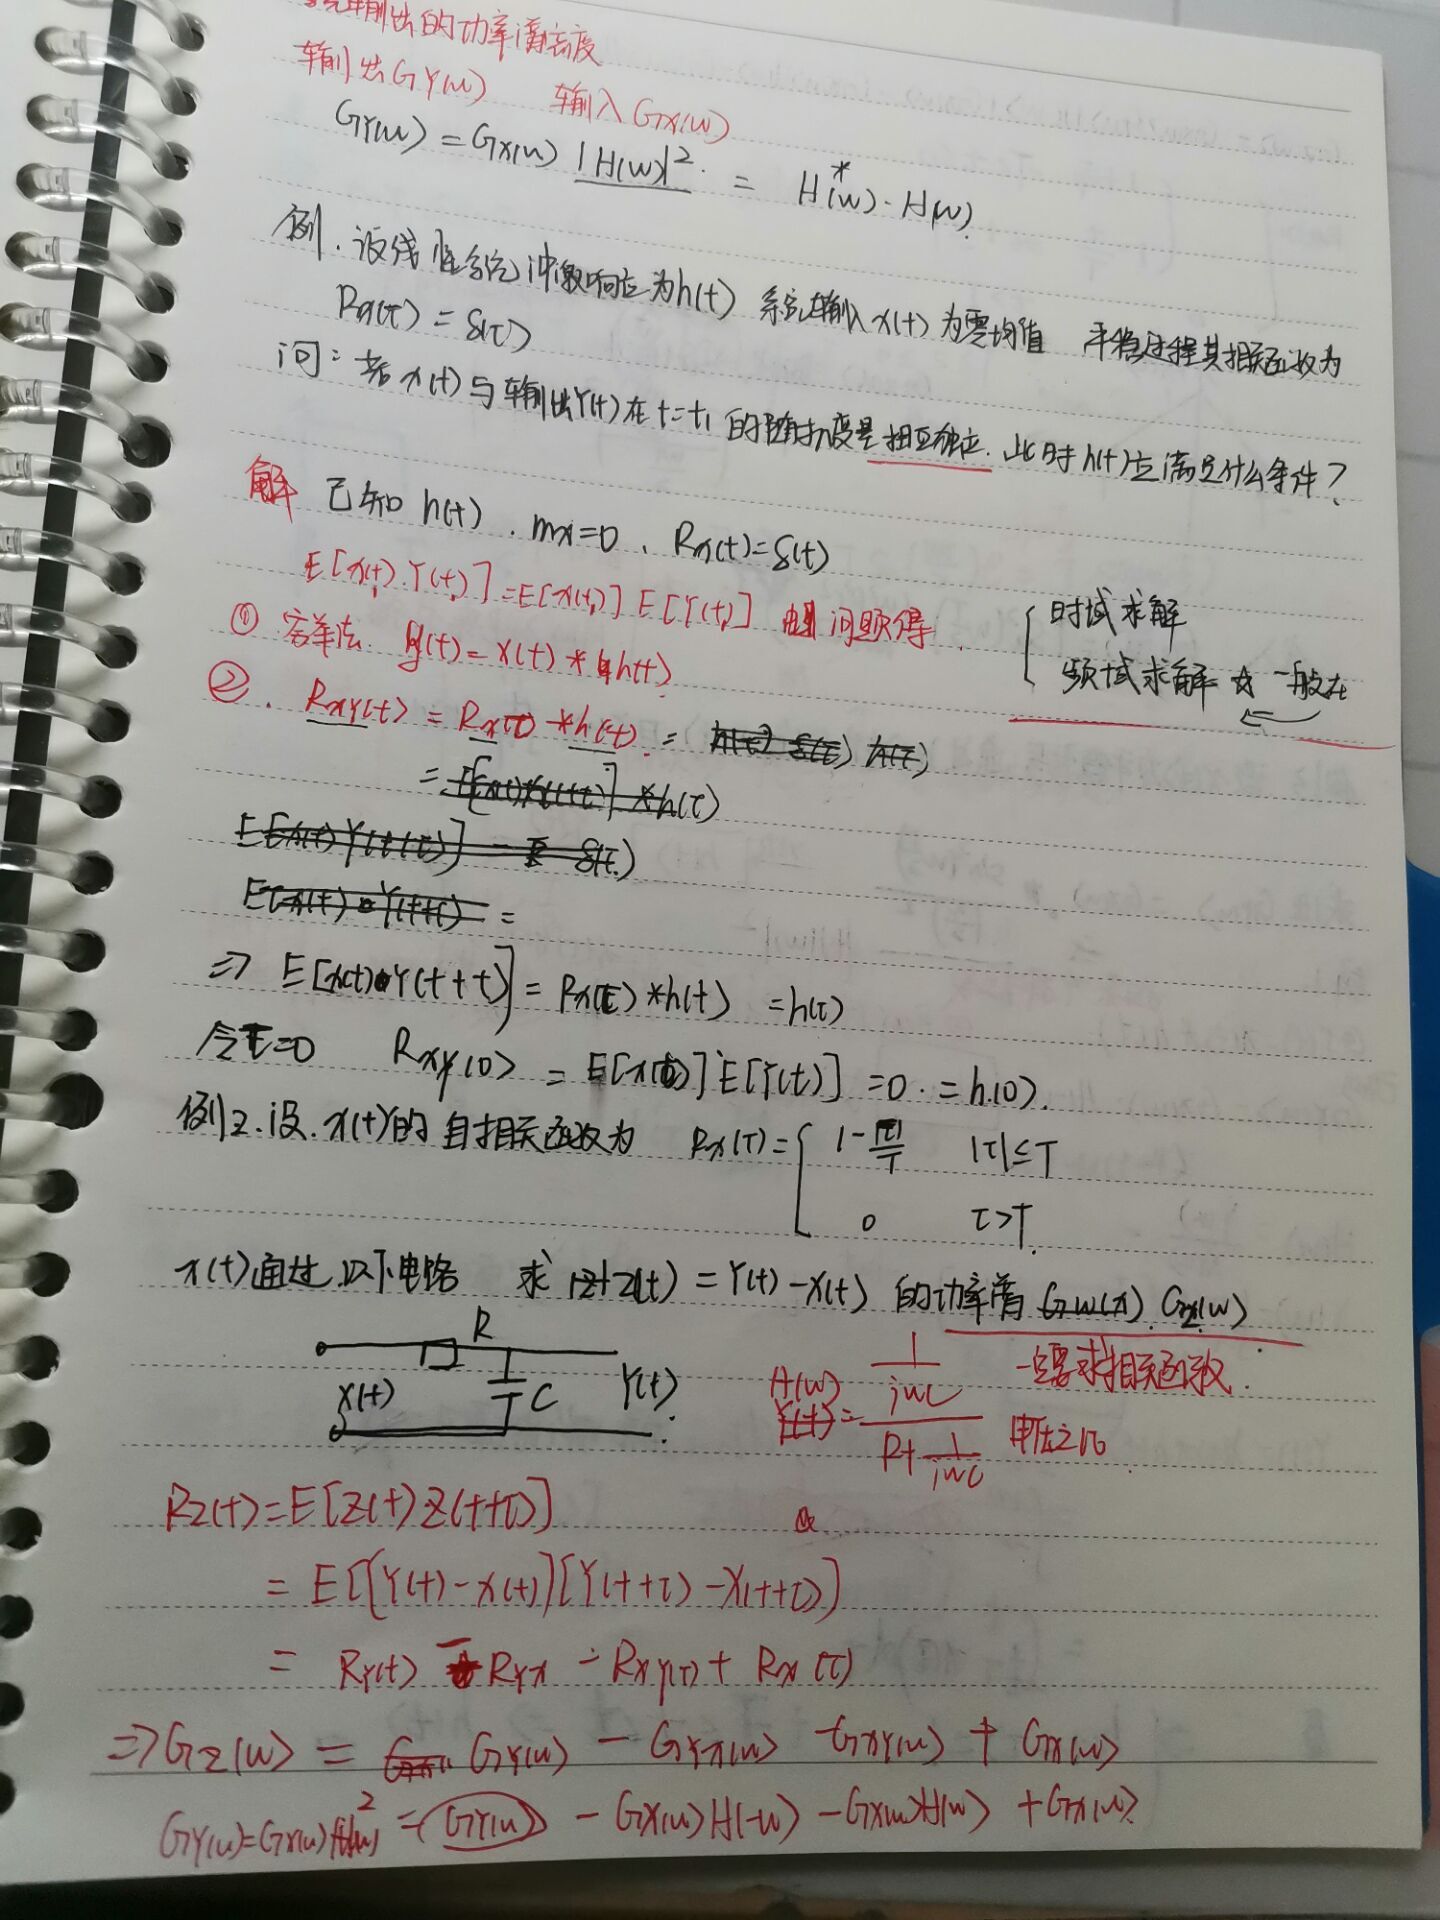 输出的功率谱密度
输出GY(w) 输入Gx(w)
GY(w) = Gx(w) |H(w)|² = H*(w)·H(w)
例. 设线性系统冲激响应为h(t) 系统输入x(t)为零均值 平稳过程其相关函数为
Rx(τ) = δ(τ)
问: 若x(t)与输出Y(t)在t=t₁的随机变量相互独立. 此时h(t)应满足什么条件?
解 已知 h(t). mx=0、Rx(t)=δ(t)
E[x(t₁)Y(t₁)]=E[x(t₁)] E[Y(t₁)] 由问题得
时域求解
① 卷积法. y(t) = x(t) * h(t)
频域求解 ☆ 一般在
②. RxY(t) = Rx(τ) * h(t) =
=
=
⇒ E[x(t)Y(t+t)] = Rx(τ) * h(t) = h(τ)
令τ=0 RxY(0) = E[x(t)] E[Y(t)] = 0. = h(0).
例2. 设. x(t)的自相关函数为 Rx(τ) = { 1 - |τ|/T |τ|≤T
0 τ>T.
x(t)通过以下电路 求 Z(t) = Y(t) - X(t) 的功率谱 Gz(w)
R
X(t) C Y(t)
一定要求相关函数.
H(w) = (1/jwC)/(R+1/jwC) 电压之比
Rz(t) = E[Z(t) Z(t+τ)]
= E[[Y(t) - x(t)][Y(t+τ) - X(t+τ)]]
= RY(t) - RYx - RxY(τ) + Rx(τ)
⇒ Gz(w) = GY(w) - GYx(w) - GxY(w) + Gx(w)
GY(w)=Gx(w)|H(w)|² = GY(w) - Gx(w)H(-w) - Gx(w)H(w) + Gx(w)